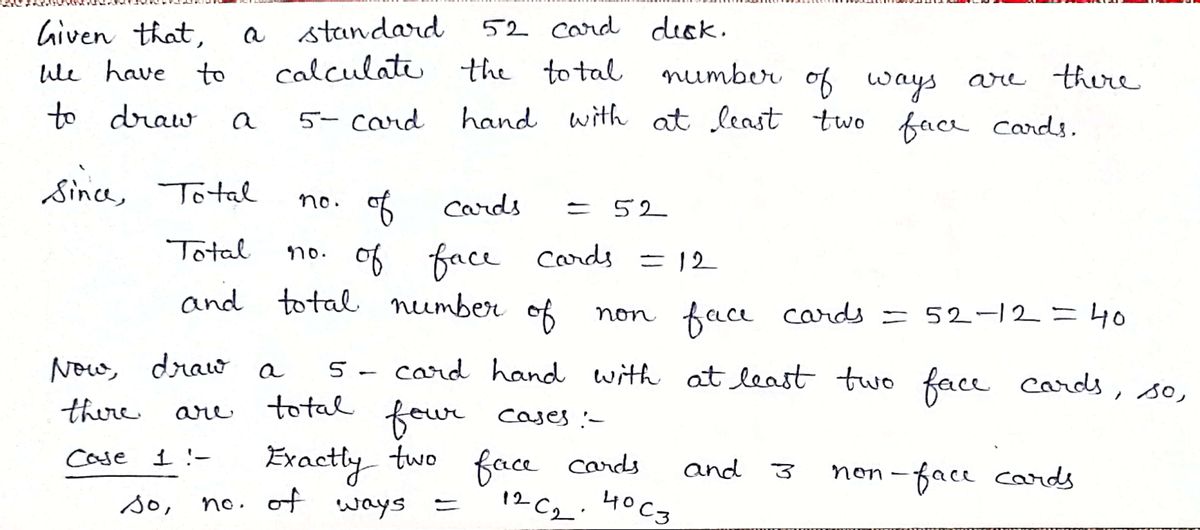 Given that, a standard 52 card deck.
We have to calculate the total number of ways are there
to draw a 5-card hand with at least two face cards.
Since, Total no. of cards = 52
Total no. of face cards = 12
and total number of non face cards = 52-12 = 40
Now, draw a 5-card hand with at least two face cards, so,
there are total four cases :-
Case 1 :- Exactly two face cards and 3 non-face cards
so, no. of ways = ¹²C₂ . ⁴⁰C₃